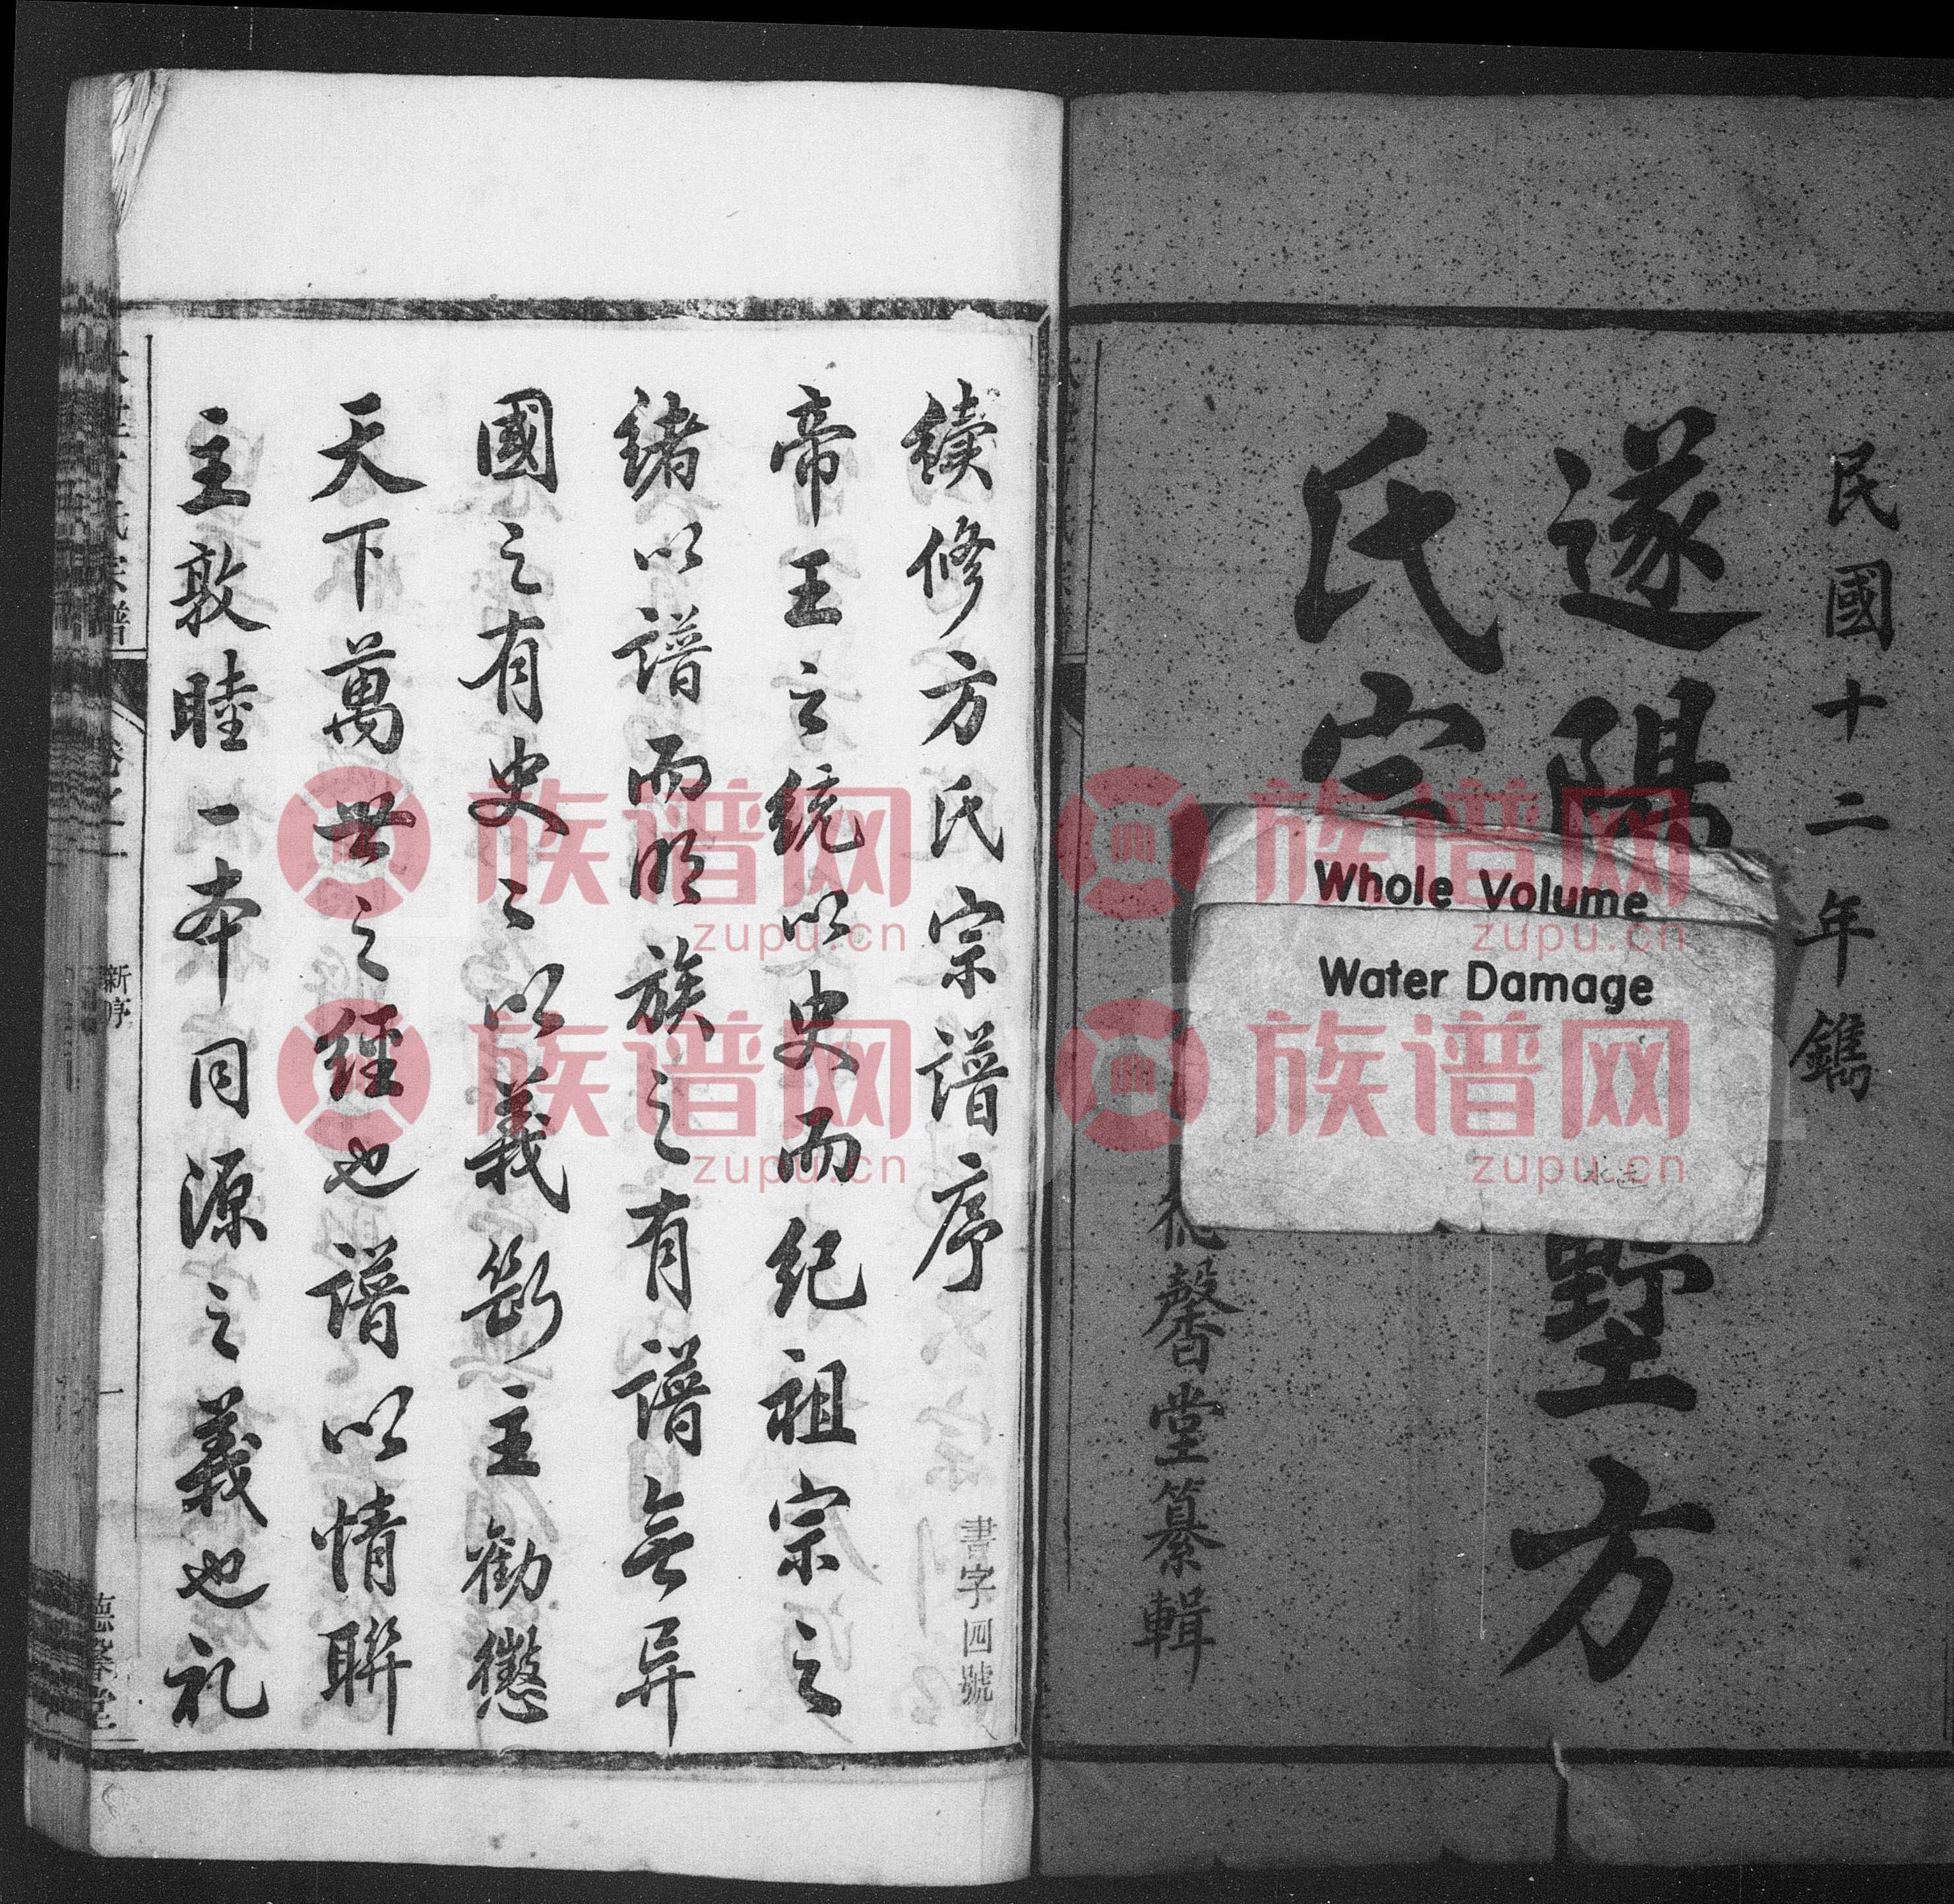 民國十二年鐫
遂陽
墅方
氏宗
馨堂纂輯
Whole Volume
Water Damage
續修方氏宗譜序
書字四號
帝王之統以史而紀祖宗之
緒以譜而明族之有譜無异
國之有史之以義斷主勸懲
天下萬世之經也譜以情聯
主敦睦一本同源之義也礼
新序
一
德馨堂
族谱网
zupu.cn
族谱网
zupu.cn
族谱网
zupu.cn
族谱网
zupu.cn